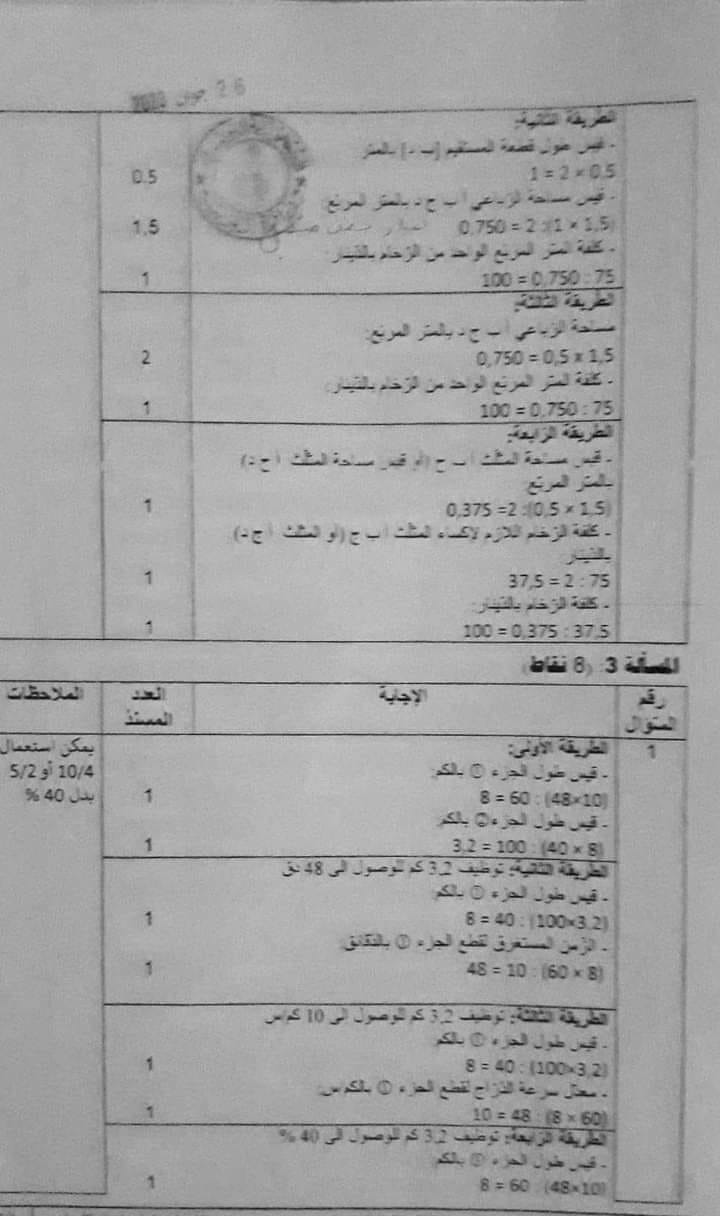 26 جوان
الطريقة الثانية:
- قيس طول قطعة المستقيم [ب د] بالمتر
0,5 × 2 = 1
0.5
- قيس مساحة الرباعي أ ب ج د بالمتر المربع:
(1,5 × 1): 2 = 0,750
1,5
- كلفة المتر المربع الواحد من الرخام بالدينار:
75 : 0,750 = 100
1
الطريقة الثالثة:
مساحة الرباعي أ ب ج د بالمتر المربع:
1,5 x 0,5 = 0,750
2
- كلفة المتر المربع الواحد من الرخام بالدينار:
75 : 0,750 = 100
1
الطريقة الرابعة:
- قيس مساحة المثلث أ ب ج (أو قيس مساحة المثلث أ ج د)
بالمتر المربع
(1,5 × 0,5): 2= 0,375
1
- كلفة الرخام اللازم لإكساء المثلث أ ب ج (أو المثلث أ ج د)
بالدينار
75 : 2 = 37,5
1
- كلفة الرخام بالدينار:
37,5 : 0,375 = 100
1
المسألة 3: (8 نقاط)
رقم المنوال
الإجابة
العدد المسند
الملاحظات
1
الطريقة الأولى:
- قيس طول الجزء ① بالكم:
(48×10) : 60 = 8
1
- قيس طول الجزء ② بالكم:
(40 × 8) : 100 = 3,2
1
يمكن استعمال
10/4 أو 5/2
بدل 40 %
الطريقة الثانية: توظيف 3,2 كم للوصول الى 48 دق
- قيس طول الجزء ① بالكم:
(100×3,2) : 40 = 8
1
- الزمن المستغرق لقطع الجزء ① بالدقائق:
(60 × 8) : 10 = 48
1
الطريقة الثالثة: توظيف 3,2 كم للوصول الى 10 كم/س
- قيس طول الجزء ① بالكم:
(100×3,2) : 40 = 8
1
- معدل سرعة الدراج لقطع الجزء ① بالكم/س:
(8 × 60) : 48 = 10
1
الطريقة الرابعة: توظيف 3,2 كم للوصول الى 40 %
- قيس طول الجزء ① بالكم:
(48×10) : 60 = 8
1